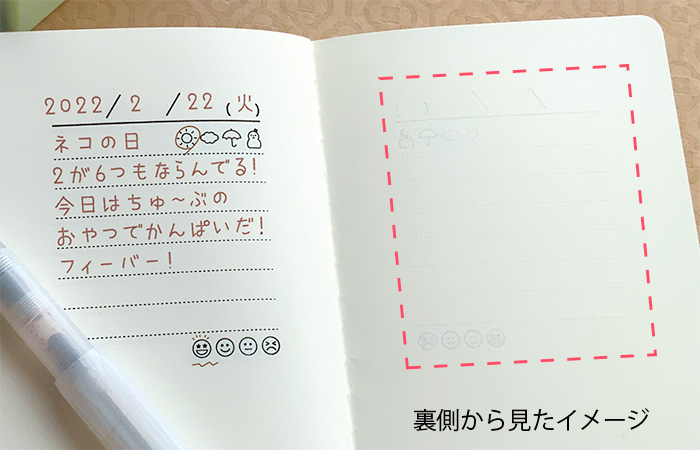 2022/2/22(火)
ネコの日
2が6つもならんでる!
今日はちゅ〜ぶの
おやつでかんぱいだ!
フィーバー!
裏側から見たイメージ